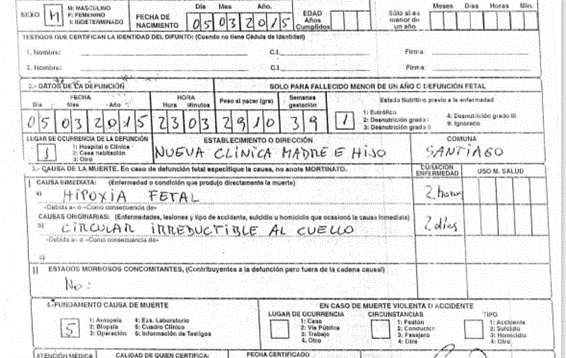 Día Mes Año Meses Días Horas Min.
SEXO H M: MASCULINO F: FEMENINO I: INDETERMINADO FECHA DE NACIMIENTO 05 03 2015 EDAD Años Cumplidos Sólo si es menor de un año
TESTIGOS QUE CERTIFICAN LA IDENTIDAD DEL DIFUNTO: (Cuando no tiene Cédula de Identidad)
1. Nombre: C.I. Firma
2. Nombre: C.I. Firma
2.- DATOS DE LA DEFUNCIÓN SOLO PARA FALLECIDO MENOR DE UN AÑO O DEFUNCIÓN FETAL
FECHA HORA Peso al nacer (gra) Semanas gestación Estado Nutritivo previo a la enfermedad
Día Mes Año Hora Minutos
05 03 2015 23 03 2910 39 1
1: Eutrófico 4: Desnutrición grado III
2: Desnutrición grado I 9: Ignorado
3: Desnutrición grado II
LUGAR DE OCURRENCIA DE LA DEFUNCIÓN ESTABLECIMIENTO O DIRECCIÓN COMUNA
1 1: Hospital o Clínica
2: Casa habitación
3: Otro
NUEVA CLINICA MADRE E HIJO SANTIAGO
3.- CAUSA DE LA MUERTE. En caso de defunción fetal especifique la causa, no anote MORTINATO. DURACIÓN ENFERMEDAD USO M. SALUD
I CAUSA INMEDIATA: (Enfermedad o condición que produjo directamente la muerte)
a) HIPOXIA FETAL 2 horas
-Debida a- o -Como consecuencia de-
CAUSAS ORIGINARIAS: (Enfermedades, lesiones y tipo de accidente, suicidio u homicidio que ocasionó la causa inmediata)
b) CIRCULAR IRREDUCTIBLE AL CUELLO 2 días
-Debida a- o -Como consecuencia de-
c)
II ESTADOS MORBOSOS CONCOMITANTES, (Contribuyentes a la defunción pero fuera de la cadena causal)
No:
4.- FUNDAMENTO CAUSA DE MUERTE EN CASO DE MUERTE VIOLENTA O ACCIDENTE
LUGAR DE OCURRENCIA CIRCUNSTANCIAS TIPO
5 1: Autopsia 4: Exa. Laboratorio 1: Casa 1: Peatón 1: Accidente
2: Biopsia 5: Cuadro Clínico 2: Vía Pública 2: Conductor 2: Suicidio
3: Operación 6: Información de Testigos 3: Trabajo 3: Pasajero 3: Homicidio
4: Otro 4: Otro 4: Otro
ATENCIÓN MÉDICA CALIDAD DE QUIEN CERTIFICA: FECHA CERTIFICADO